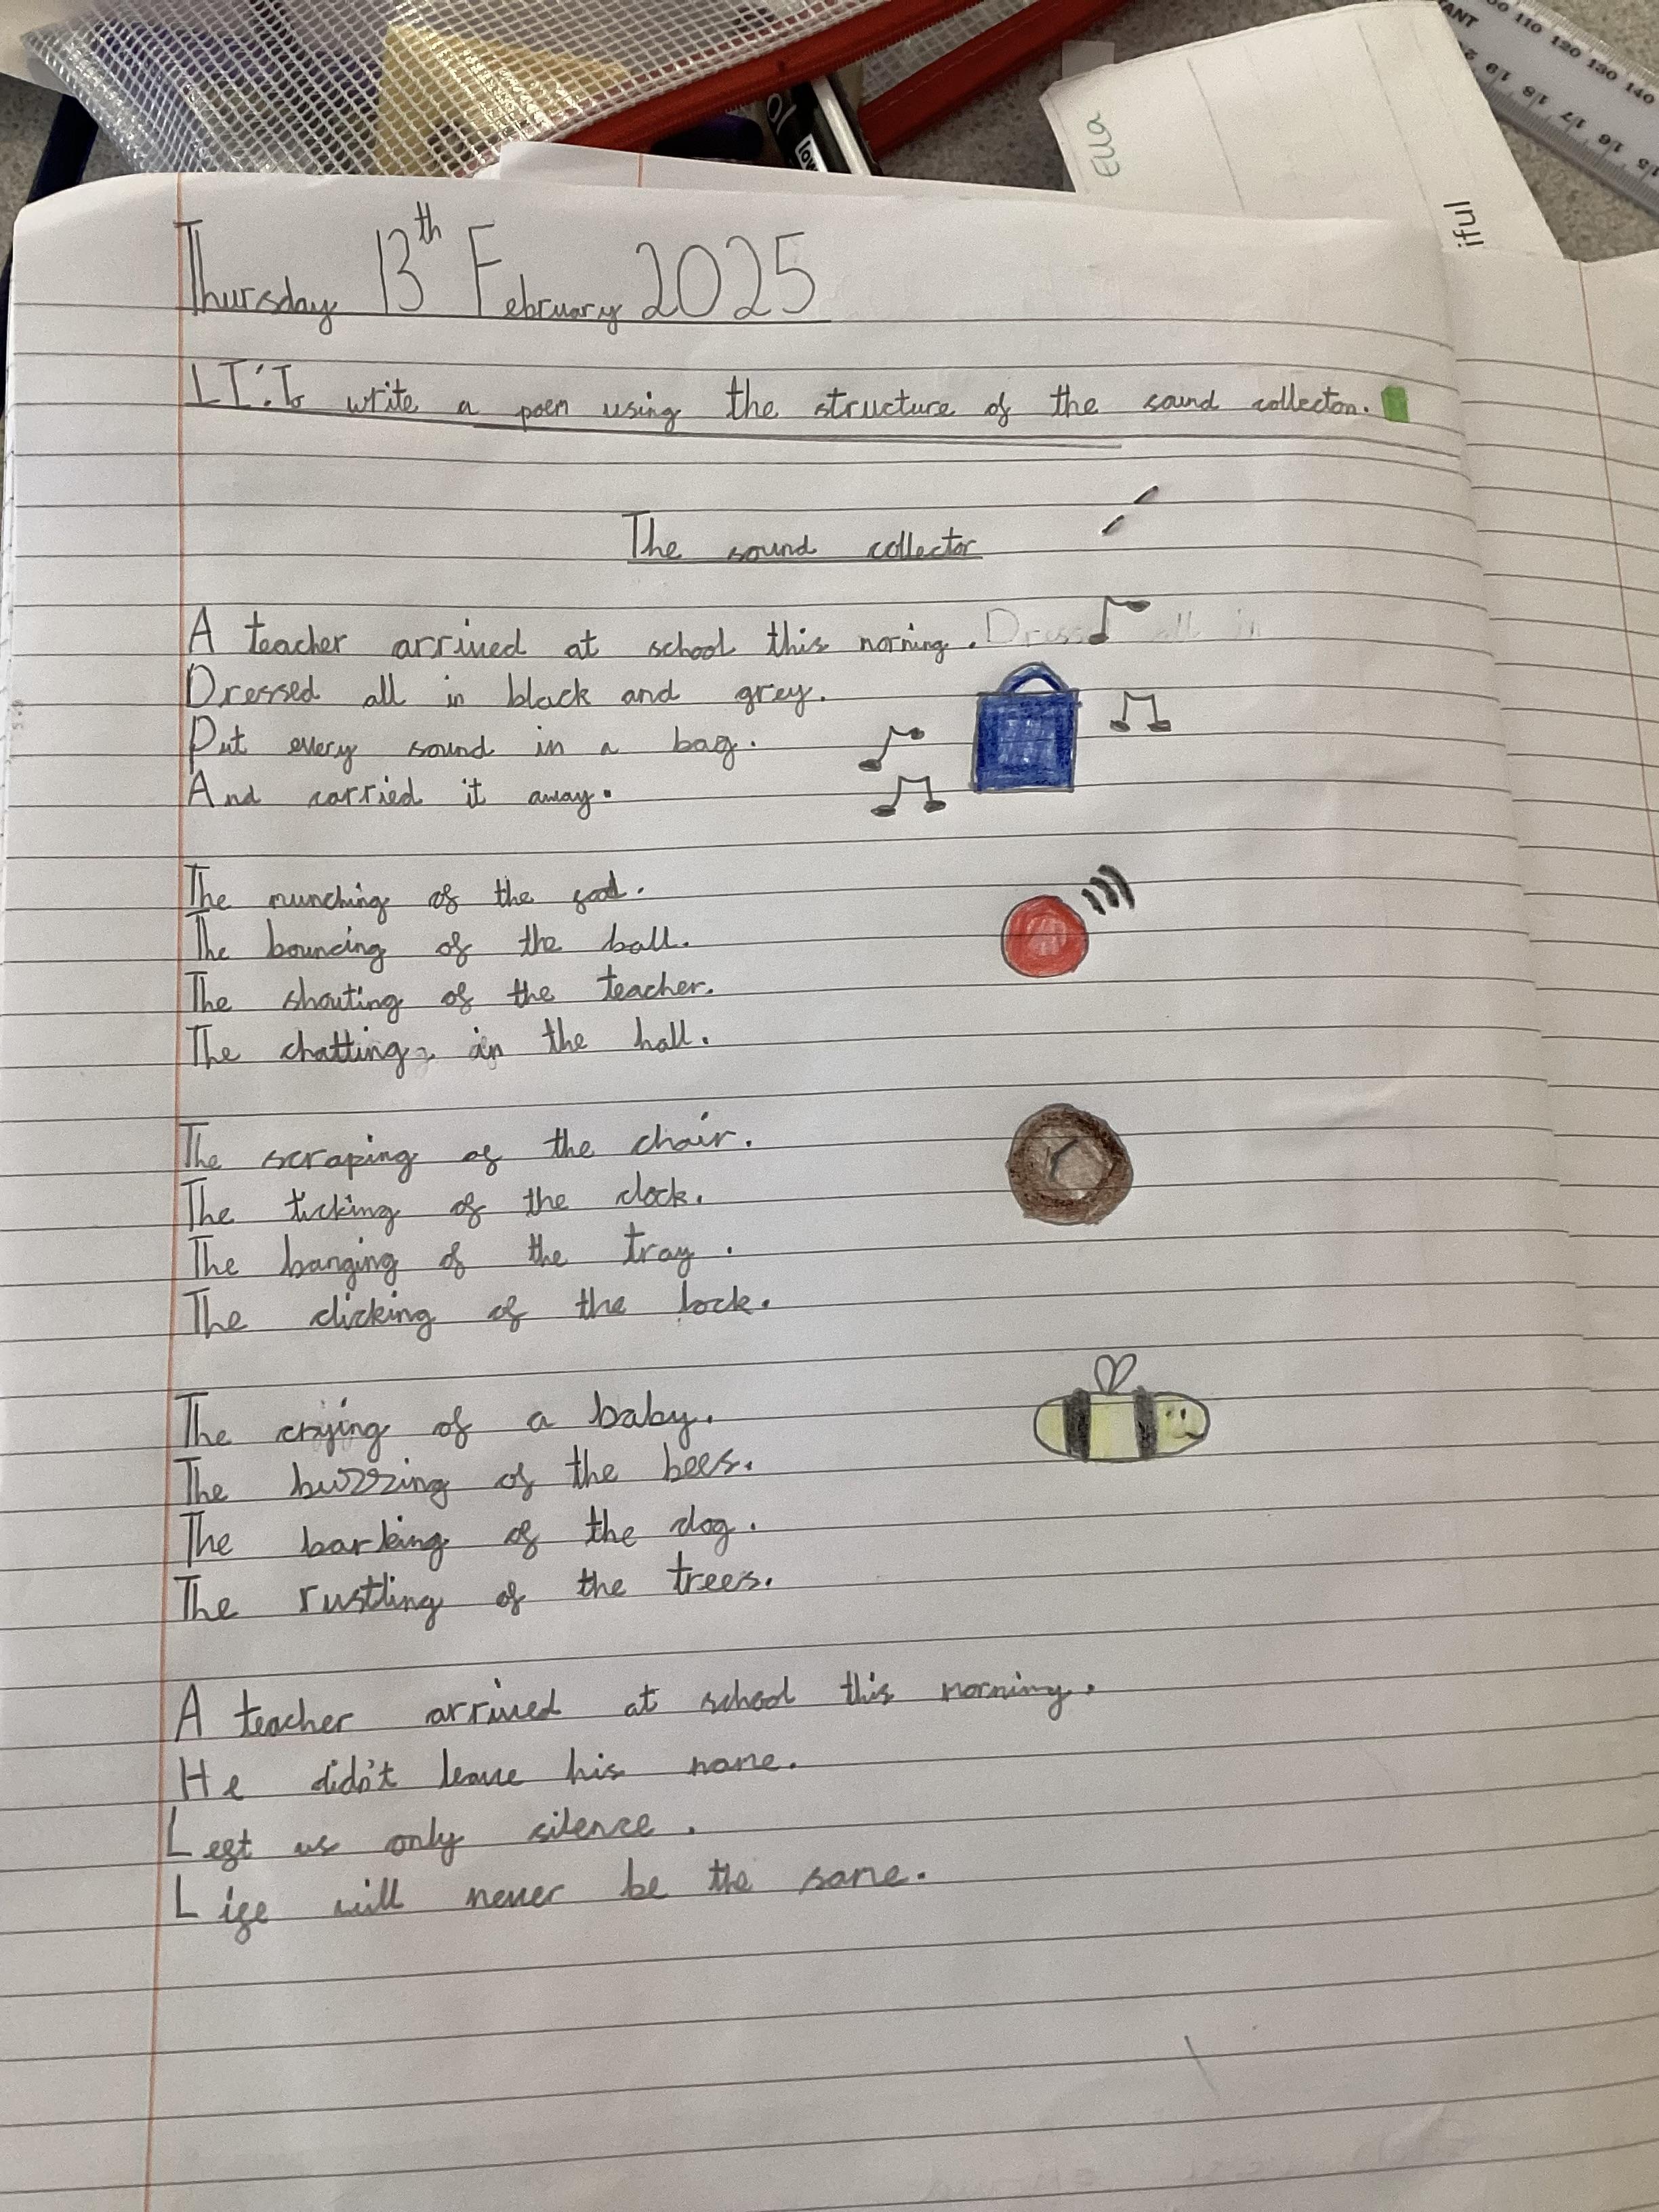 ol
low
Ella
iful
TANT
110 120 130 140
19 18 17 16 15
Thursday 13th February 2025
LI: To write a poem using the structure of the sound collector.
The sound collector
A teacher arrived at school this morning. Dressed all in
Dressed all in black and grey.
Put every sound in a bag.
And carried it away.
The munching of the food.
The bouncing of the ball.
The shouting of the teacher.
The chatting in the hall.
The scraping of the chair.
The ticking of the clock.
The banging of the tray.
The clicking of the lock.
The crying of a baby.
The buzzing of the bees.
The barking of the dog.
The rustling of the trees.
A teacher arrived at school this morning.
He didn't leave his name.
Left us only silence.
Life will never be the same.